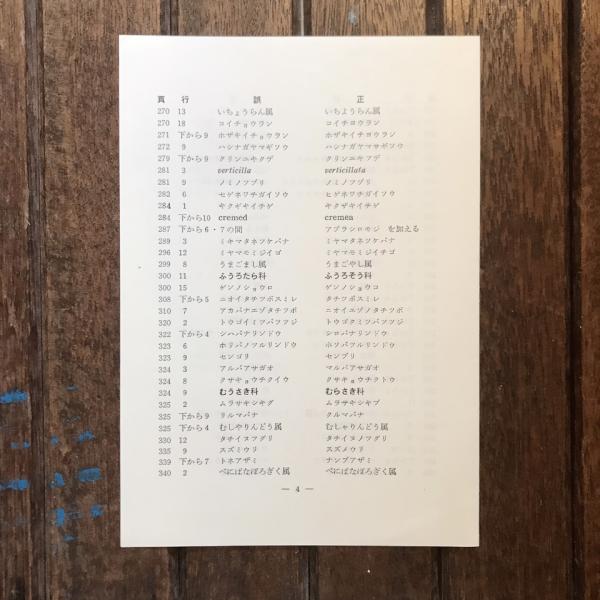 頁 行 誤 正
270 13 いちょうらん属 いちようらん属
270 18 コイチョウラン コイチヨウラン
271 下から9 ホザキイチョウラン ホザキイチヨウラン
272 9 ハシナガヤマギソウ ハシナガヤマサギソウ
279 下から9 クリンニキクデ クリンユキフデ
281 3 verticilla verticillata
281 9 ノミノツブリ ノミノフヅリ
282 6 ヒゲネワチガイソウ ヒゲネワチガイソウ
284 1 ヤクギキイチゲ ヤクザキイチゲ
284 下から10 cremed cremea
287 下から6・7の間 アブラシロモジ を加える
289 3 ミキマタネツケバナ ミヤマタネツケバナ
296 12 ミヤマモミジイゴ ミヤマモミジイチゴ
299 8 うまごまし属 うまごやし属
300 11 ふうろたら科 ふうろそう科
300 15 ゲンノショウロ ゲンノショウコ
308 下から5 ニオイタチツボスミレ タチツボスミレ
310 7 アカバナエゾタチツボ ニオイエゾノタチツボ
320 2 トウゴイミツバツツジ トウゴクミツバツツジ
322 下から4 シハバナリンドウ シロバナリンドウ
323 6 ホリバノフルリンドウ ホソバツルリンドウ
323 9 センゴリ センブリ
324 3 アルバアサガオ マルバアサガオ
324 8 クサキョウチクイウ クサキョウチクトウ
324 9 むうさき科 むらさき科
325 2 ムラサキシキグ ムラサキシキブ
325 下から9 リルマバナ クルマバナ
325 下から4 むしやりんどう属 むしゃりんどう属
330 12 タチイヌフグリ タチイヌノフグリ
335 9 スズミウリ スズメウリ
339 下から7 トネアザミ ナンブアザミ
340 2 べにばなぼろぎく属 べにばなぼろぎく属
— 4 —